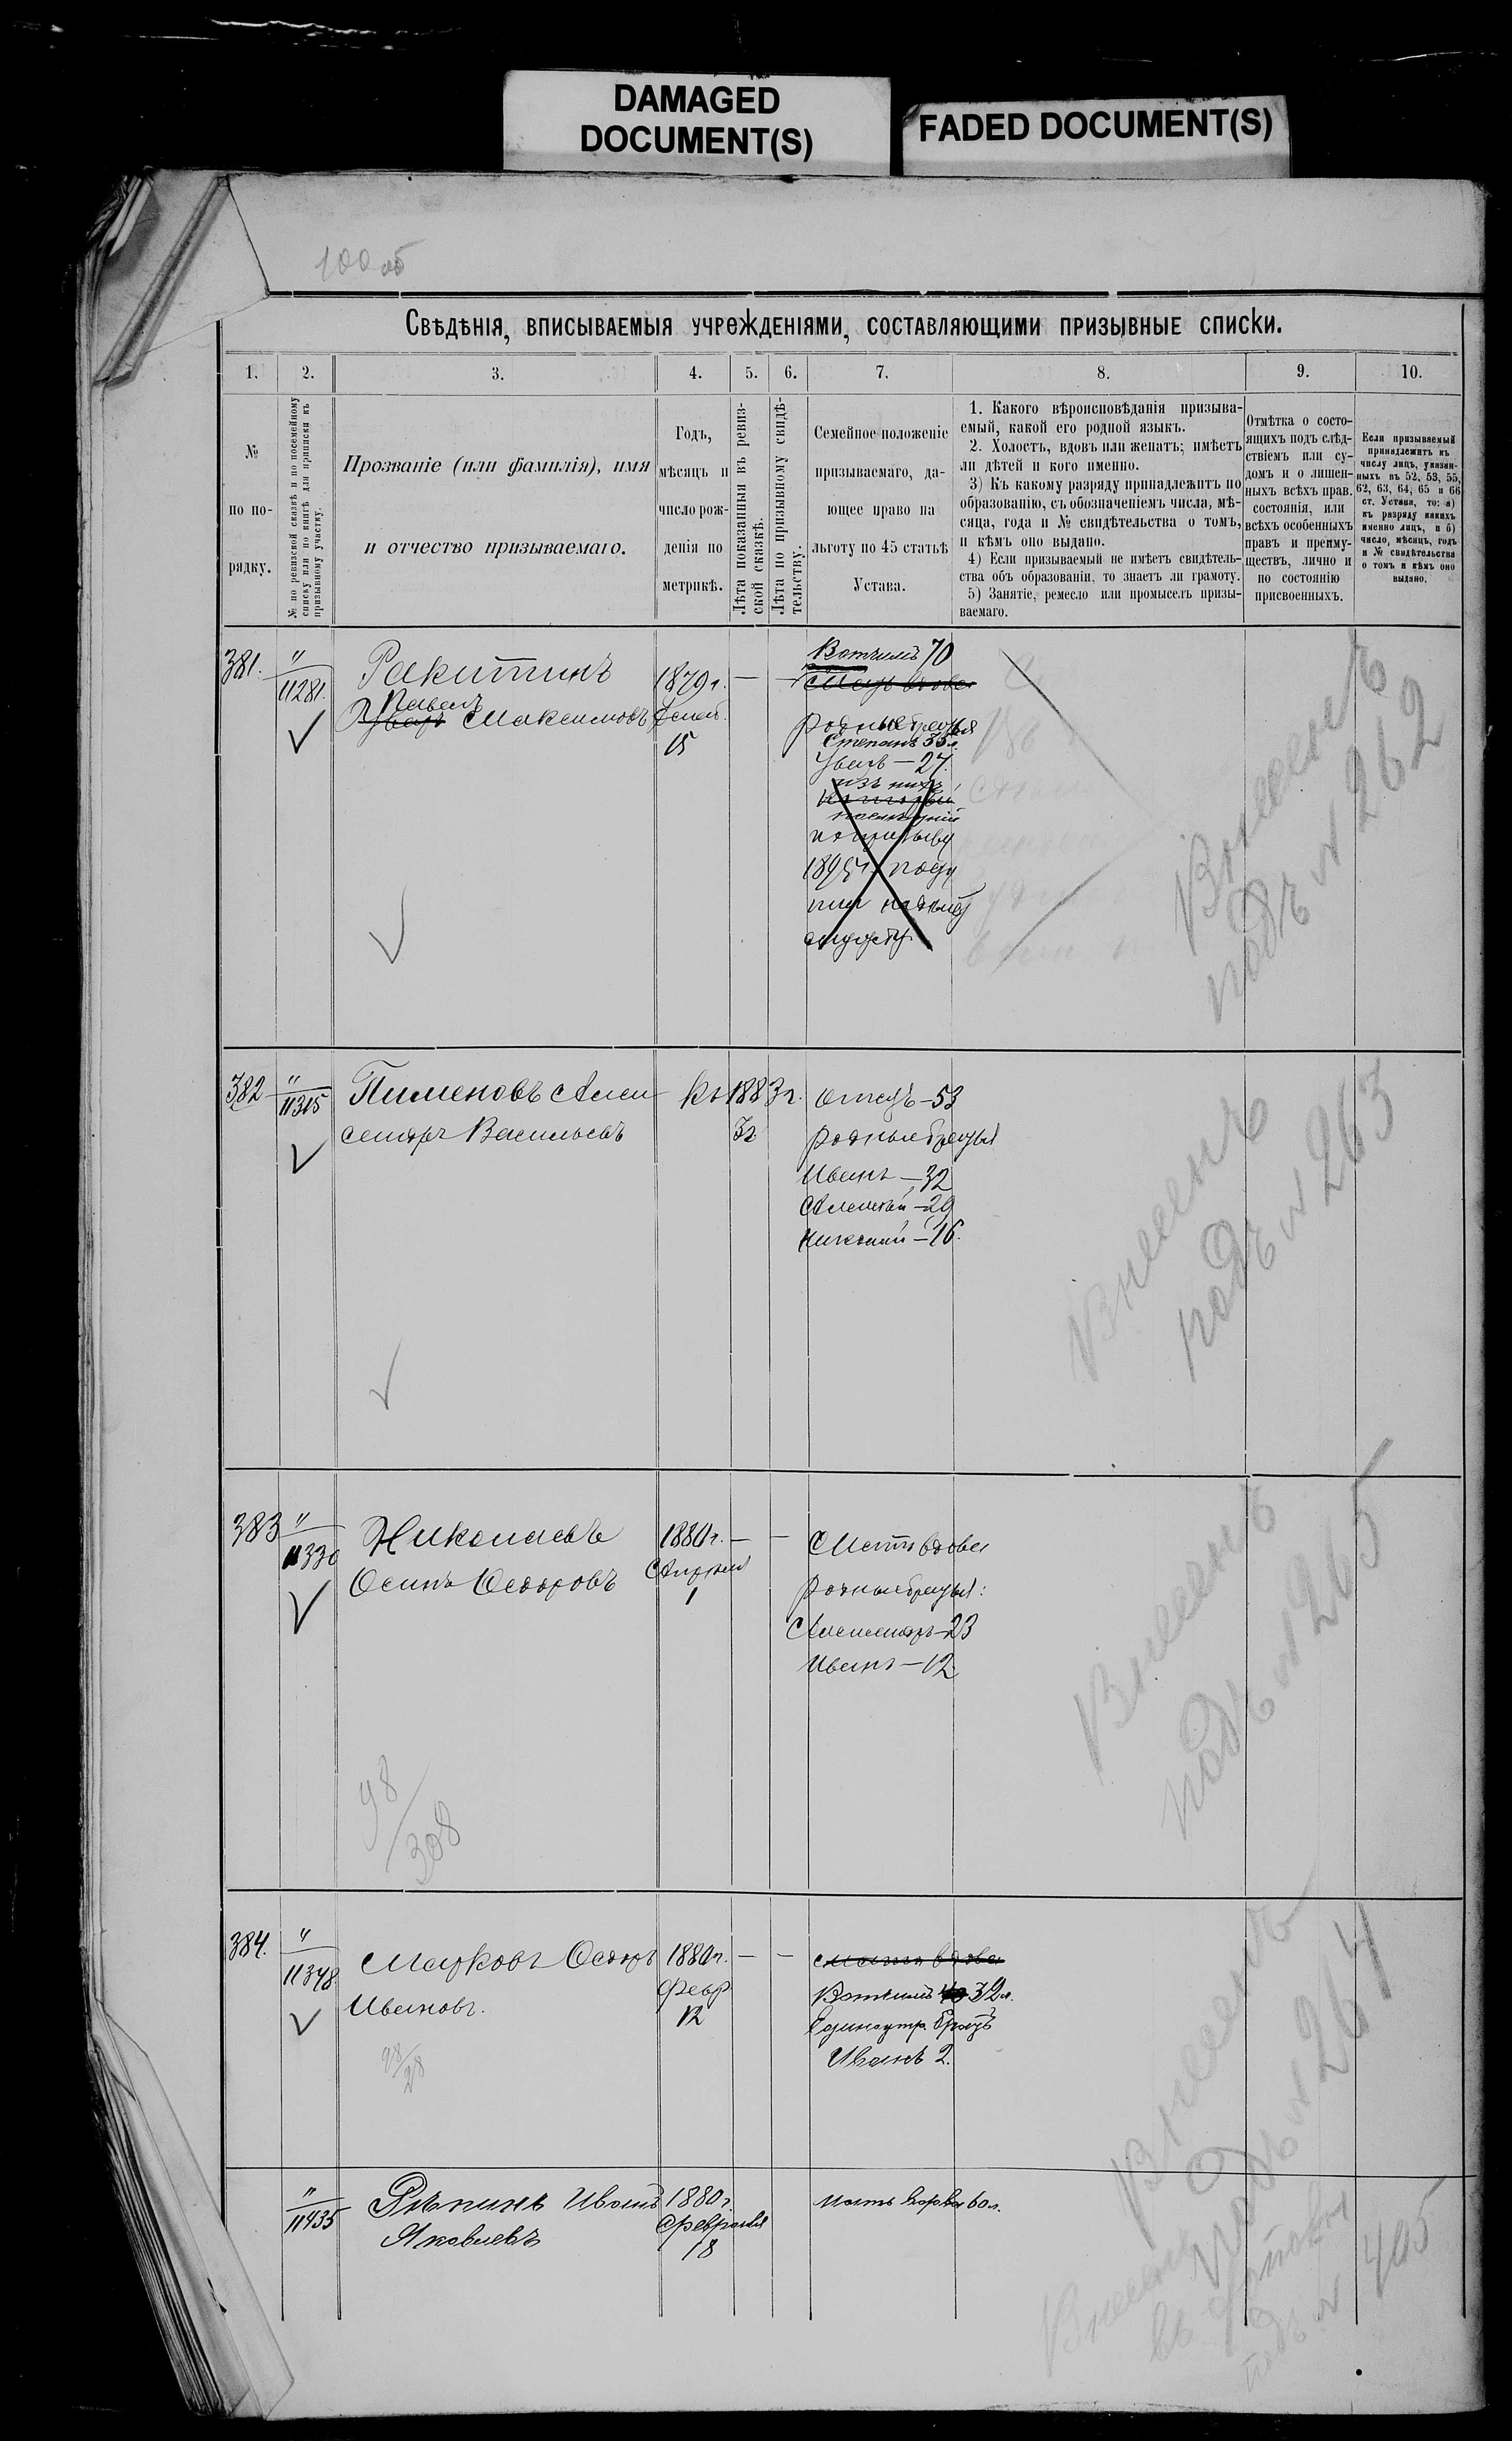 DAMAGED
DOCUMENT(S)
FADED DOCUMENT(S)
100 об
Свѣдѣнія, вписываемыя учрежденіями, составляющими призывные списки.
1.
2.
3.
4.
5.
6.
7.
8.
9.
10.
№
по по-
рядку.
№ по ревизской сказкѣ и по посемейному
списку или по книгѣ для приписки къ
призывному участку.
Прозваніе (или фамилія), имя
и отчество призываемаго.
Годъ,
мѣсяцъ и
число рож-
денія по
метрикѣ.
Лѣта показанныя въ ревиз-
ской сказкѣ.
Лѣта по призывному свидѣ-
тельству.
Семейное положеніе
призываемаго, да-
ющее право на
льготу по 45 статьѣ
Устава.
1. Какого вѣроисповѣданія призыва-
емый, какой его родной языкъ.
2. Холостъ, вдовъ или женатъ; имѣетъ
ли дѣтей и кого именно.
3) Къ какому разряду принадлежитъ по
образованію, съ обозначеніемъ числа, мѣ-
сяца, года и № свидѣтельства о томъ,
и кѣмъ оно выдано.
4) Если призываемый не имѣетъ свидѣтель-
ства объ образованіи, то знаетъ ли грамоту.
5) Занятіе, ремесло или промыселъ призы-
ваемаго.
Отмѣтка о состо-
ящихъ подъ слѣд-
ствіемъ или су-
домъ и о лишен-
ныхъ всѣхъ прав.
состоянія, или
всѣхъ особенныхъ
правъ и преиму-
ществъ, лично и
по состоянію
присвоенныхъ.
Если призываемый
принадлежитъ къ
числу лицъ, указан-
ныхъ въ 52, 53, 55,
62, 63, 64, 65 и 66
ст. Устава, то: а)
къ разряду какихъ
именно лицъ, и б)
число, мѣсяцъ, годъ
и № свидѣтельства
о томъ и кѣмъ оно
выдано.
381.
"
11281
Ракитинъ
Павелъ
Уваръ Максимовъ
1879 г.
15
Вотчимъ 70
Мать вдова
родные братья
Степанъ 35 л.
Уваръ — 27.
изъ нихъ
который
послѣдній
по призыву
1895 г.
Внесенъ
подъ № 262
382
"
11315
Пименовъ Алек
сандръ Васильевъ
Къ 1883 г.
3 г.
отецъ — 53
родные братья
Иванъ — 32
Алексѣй — 29
Николай — 16.
Внесенъ
подъ № 263
383
"
11330
Николаевъ
Осипъ Ѳедоровъ
1880 г.
Апрѣля
1
Мать вдова
родные братья:
Александръ — 23
Иванъ — 12
98/308
Внесенъ
подъ № 265
384.
"
11348
Марковъ Ѳедоръ
Ивановъ.
1880 г.
Февр
12
98/28
мать вдова
Вотчимъ 32 л.
Единоутр. братъ
Иванъ 2.
Внесенъ
подъ № 264
"
11435
Рѣпинъ Иванъ
Яковлевъ
1880 г.
Февраля
18
Мать вдова 60 л.
Внесенъ
подъ № 405